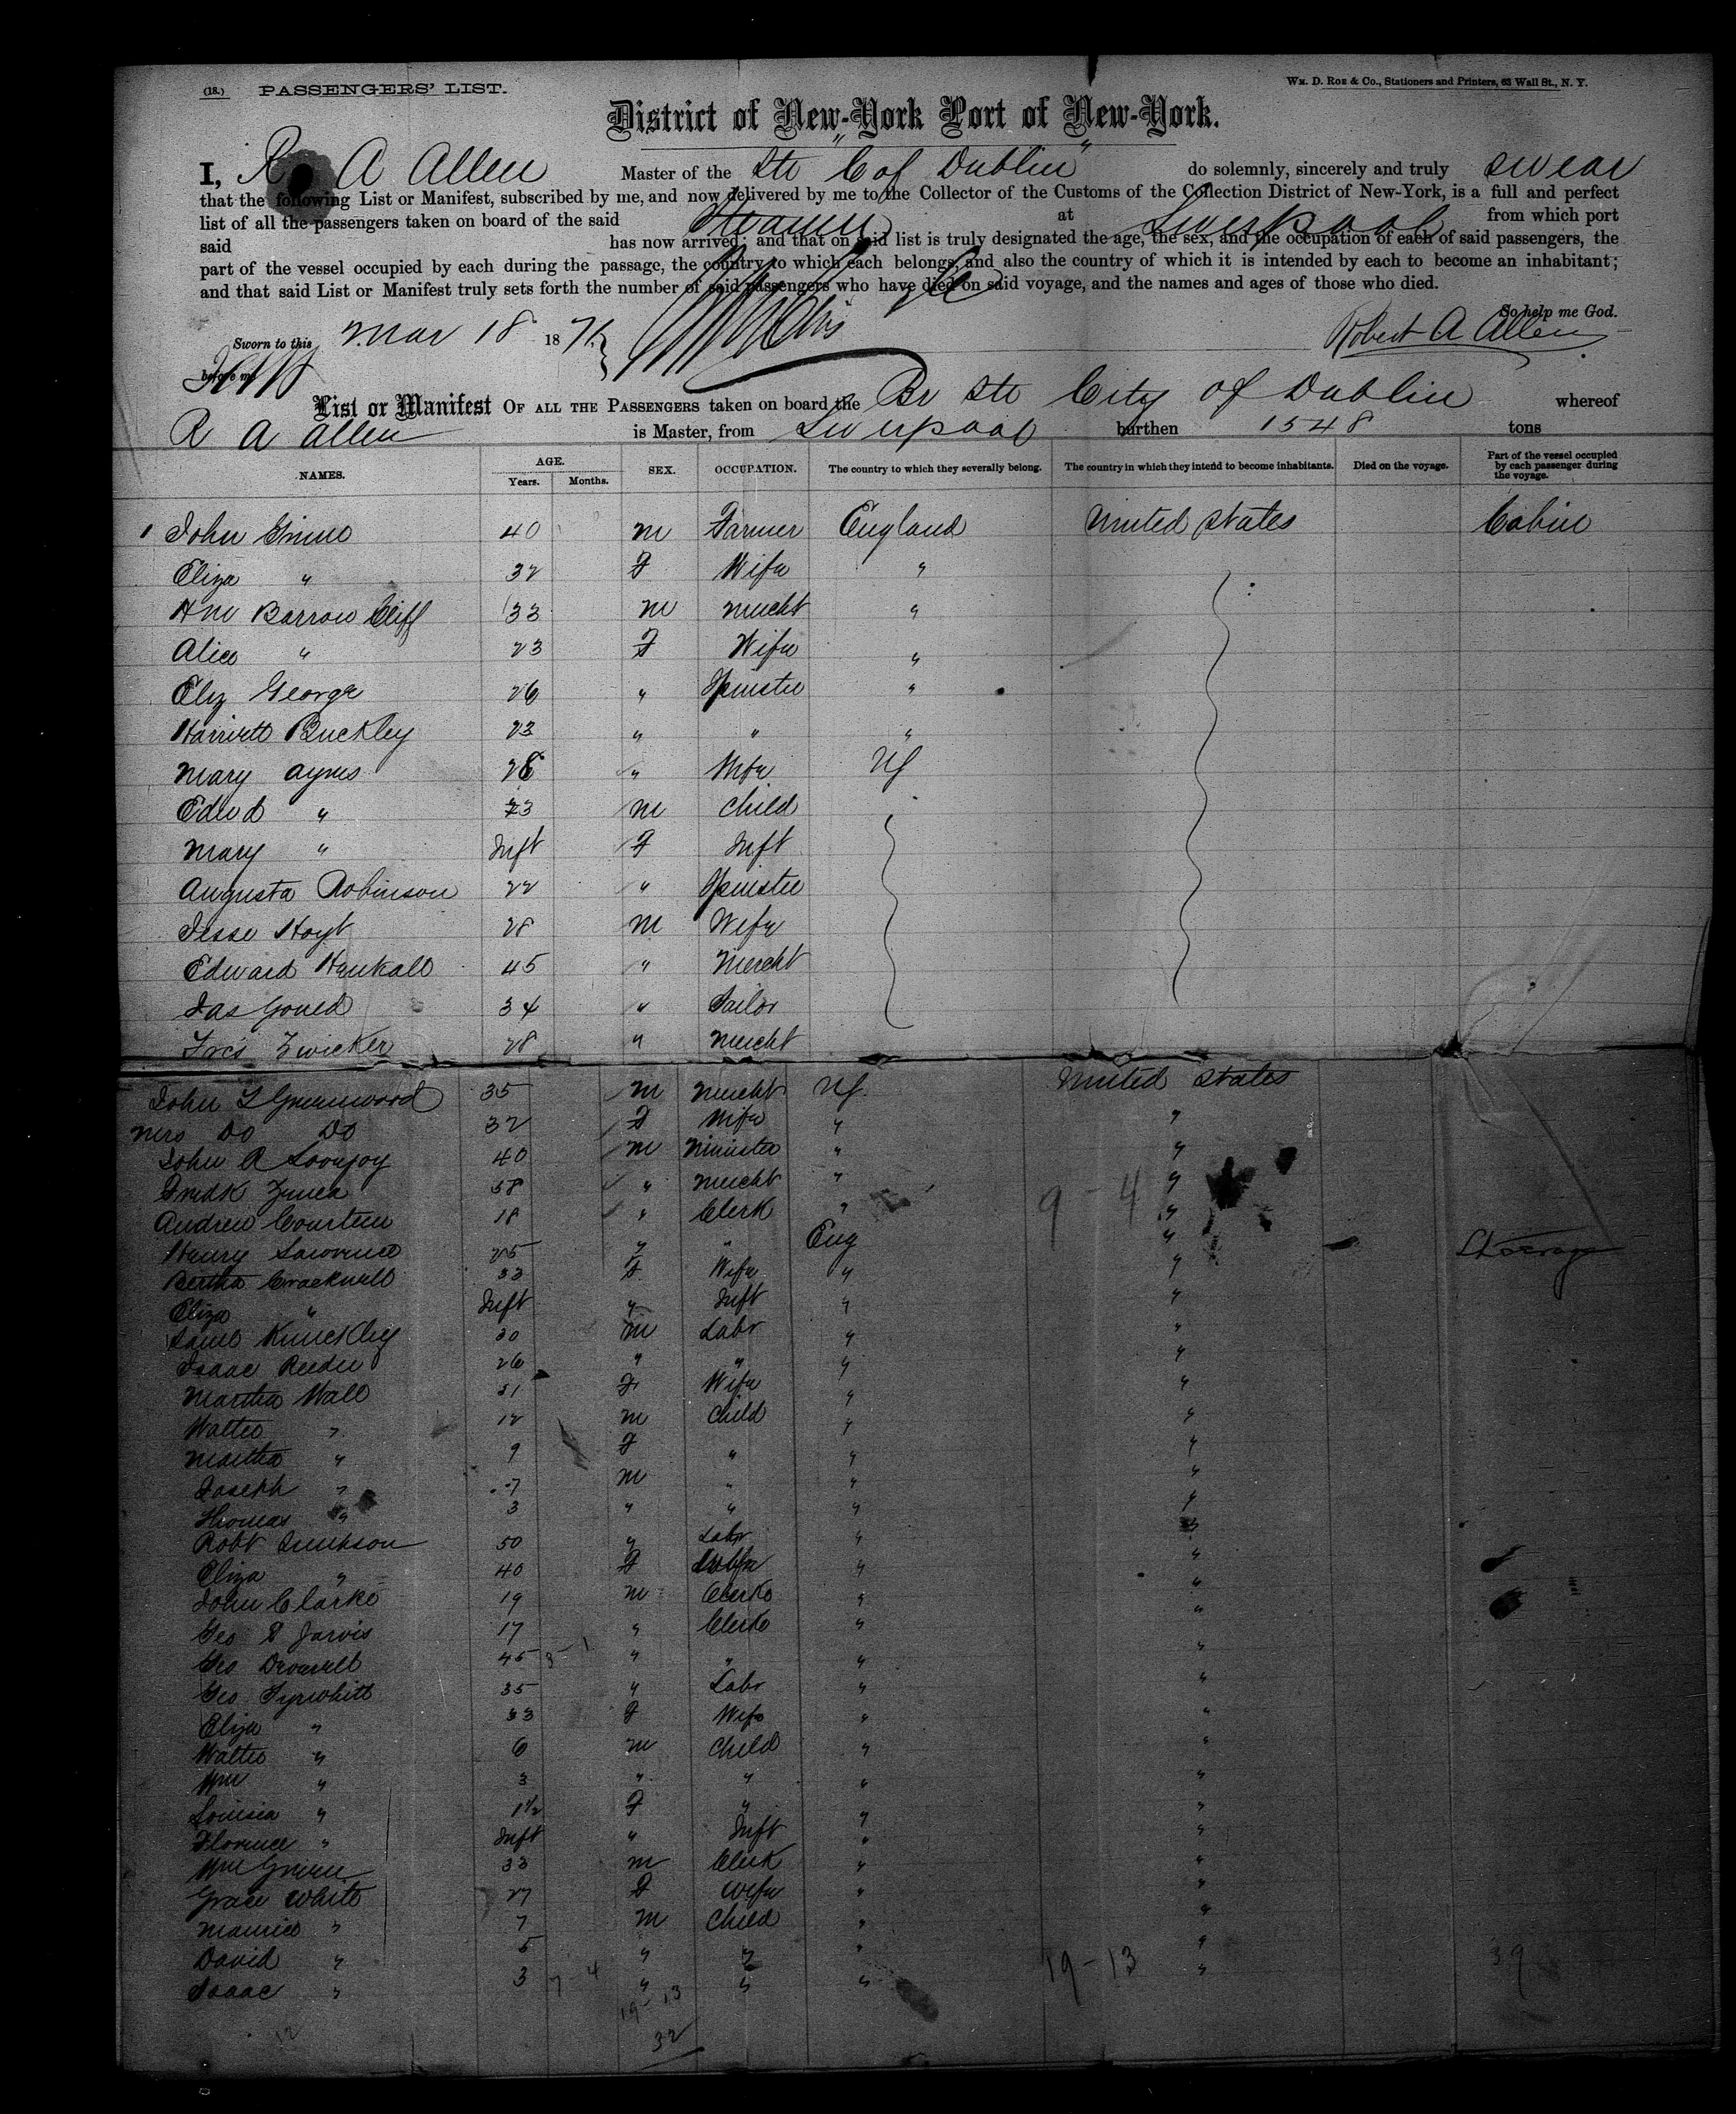 (18.) PASSENGERS' LIST. Wm. D. Roe & Co., Stationers and Printers, 63 Wall St., N. Y.
District of New-York Port of New-York.
I, R A Allen Master of the Str "C of Dublin" do solemnly, sincerely and truly swear
that the following List or Manifest, subscribed by me, and now delivered by me to the Collector of the Customs of the Collection District of New-York, is a full and perfect
list of all the passengers taken on board of the said Steamer at Liverpool from which port
said has now arrived; and that on said list is truly designated the age, the sex, and the occupation of each of said passengers, the
part of the vessel occupied by each during the passage, the country to which each belongs, and also the country of which it is intended by each to become an inhabitant;
and that said List or Manifest truly sets forth the number of said passengers who have died on said voyage, and the names and ages of those who died.
So help me God.
Sworn to this Mar 18 1871 Robert A Allen
before me
List or Manifest OF ALL THE PASSENGERS taken on board the Br Str City of Dublin whereof
R A Allen is Master, from Liverpool burthen 1548 tons
NAMES. AGE. Years. Months. SEX. OCCUPATION. The country to which they severally belong. The country in which they intend to become inhabitants. Died on the voyage. Part of the vessel occupied by each passenger during the voyage.
1 John 40 M Farmer England United States Cabin
Eliza " 32 F Wife "
Barrow Cliff 33 M Mercht "
Alice " 23 F Wife "
Eliz George 26 " Spinster "
Harriett Buckley 23 " " "
Mary Ayres " Wife US
Edwd " M Child
Mary " Inft F Inft
Augusta Robinson 22 " Spinster
Jesse Hoyt 28 M Wife
Edward 45 " Mercht
Jas Gould 34 " Sailor
Frcs Zwicker 28 " Mercht
John L Greenwood 35 M Mercht US United States
Mrs Do Do 32 F Wife " "
John A Lovejoy 40 M Minister " "
Fredk 38 " Mercht " 9-4 "
Andrew 18 " Clerk " "
Henry Lawrence 25 " " Eng " Steerage
Bertha Cracknell 33 F Wife " "
Eliza " Inft " Inft " "
Saml 30 M Labr " "
Isaac Reeder 26 " " " "
Martha Wall 31 F Wife " "
Walter " 12 M Child " "
Martha " 9 F " " "
Joseph " 7 M " " "
Thomas " 3 " " " "
Robt 50 " Labr " "
Eliza " 40 F Wife " "
John Clarke 19 M Clerk " "
Geo Jarvis 17 " Clerk " "
Geo 45 3-1 " " " "
Geo Tyrwhitt 35 " Labr " "
Eliza " 33 F Wife " "
Walter " 6 M Child " "
Wm " 3 " " " "
Louisia " 1½ F " " "
Florence " Inft " Inft " "
Wm Green 33 M Clerk " "
Grace White 27 F Wife " "
Maurice " 7 M Child " "
David " 5 " " " "
Isaac " 3 7-4 " " " 19-13 " 39
12 19-13
32